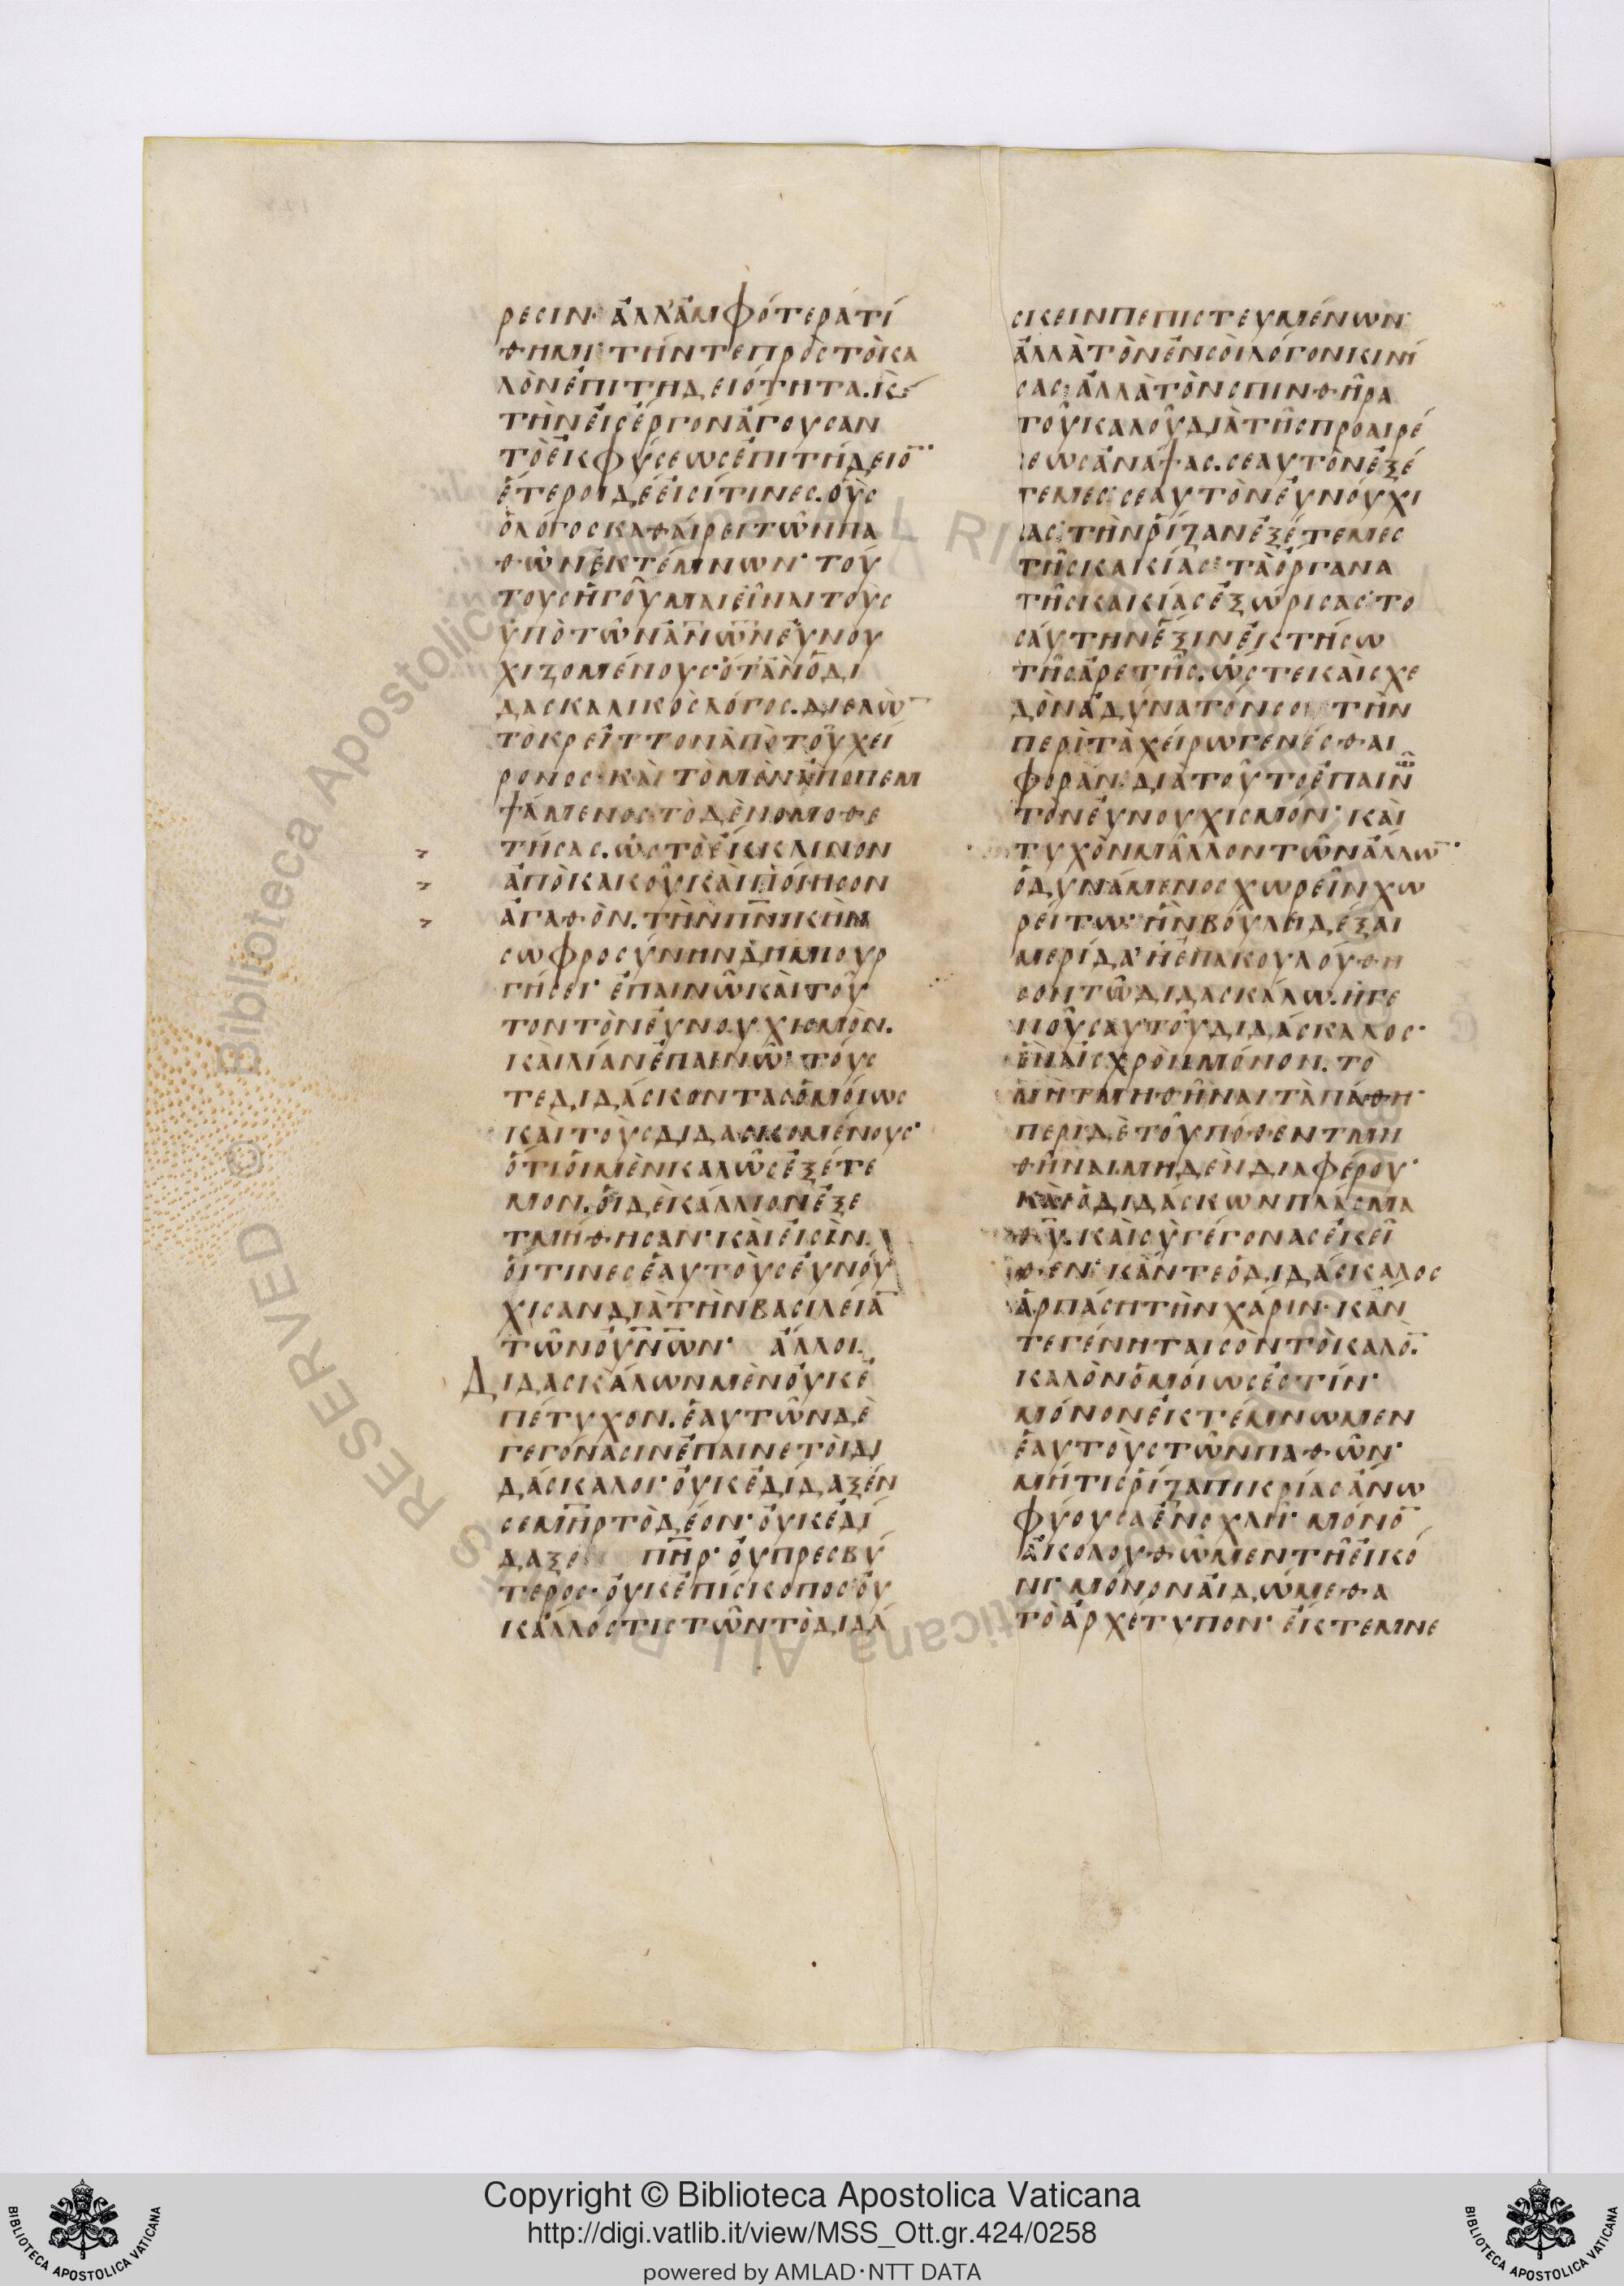 ρεσιν· ἀλλ' ἀμφότερα τί
θημι· τήν τε πρὸς τὸ κα
λὸν ἐπιτηδειότητα. κ(αὶ)
τὴν εἰς ἔργον ἄγουσαν
τὸ ἐκ φύσεως ἐπιτήδειο̅
ἕτεροι δέ εἰσί τινες. οὓς
ὁ λόγος καθαίρει τῶν πα
θῶν ἐκτέμνων· τού
τους ἡγοῦμαι εἶναι τοὺς
ὑπὸ τῶν ἀ̅ν̅ω̅ν εὐνου
χιζομένους· ὅταν ὁ δι
δασκαλικὸς λόγος. διελὼ̅
τὸ κρεῖττον ἀπὸ τοῦ χεί
ρονος· καὶ τὸ μὲν ἀποπεμ
ψάμενος· τὸ δὲ νομοθε
τήσας. ὡς τὸ ἔκκλινον
ἀπὸ κακοῦ καὶ ποίησον
ἀγαθὸν. τὴν π̅ν̅ικὴν
σωφροσύνην δημιουρ
γήσει· ἐπαινῶ καὶ τοῦ
τον τὸν εὐνουχισμὸν.
καὶ λίαν ἐπαινῶ· τούς
τε διδάσκοντας ὁμοίως
καὶ τοὺς διδασκομένους·
ὅτι οἱ μὲν καλῶς ἐξέτε
μον. οἱ δὲ κάλλιον ἐξε
τμήθησαν· καὶ εἰσὶν.
οἵτινες ἑαυτοὺς εὐνού
χισαν διὰ τὴν βασιλεία̅
τῶν ο̅υ̅ν̅ω̅ν· ἄλλοι
Διδασκάλων μὲν οὐκ ἐ
πέτυχον. ἑαυτῶν δὲ
γεγόνασιν ἐπαινετοὶ δι
δάσκαλοι· οὐκ ἐδίδαξέν
σε μ̅η̅ρ τὸ δέον· οὐκ ἐδί
δαξε π̅η̅ρ· οὐ πρεσβύ
τερος· οὐκ ἐπίσκοπος· οὐ
κ ἄλλός τις τῶν τὸ διδά
σκειν πεπιστευμένων·
ἀλλὰ τὸν ἐν σοὶ λόγον κινή
σας· ἀλλὰ τὸν σπινθῆρα
τοῦ καλοῦ διὰ τῆς προαιρέ
σεως ἀνάψας. σεαυτὸν ἐξέ
τεμες· σεαυτὸν εὐνούχι
σας· τὴν ῥίζαν ἐξέτεμες
τῆς κακίας· τὰ ὄργανα
τῆς κακίας ἐξώρισας· το
σαύτην ἕξιν ἐκτήσω
τῆς ἀρετῆς. ὥς τε καὶ σχε
δὸν ἀδύνατόν σοι τὴν
περὶ τὰ χείρω γενέσθαι
φοράν· διὰ τοῦτο ἐπαινῶ
τὸν εὐνουχισμόν· καὶ
τυχὸν μᾶλλον τῶν ἄλλω̅·
ὁ δυνάμενος χωρεῖν χω
ρείτω· ἣν βούλει δέξαι
μερίδα· ἢ ἐπακουλούθη
σον τῶ διδασκάλω. ἢ γε
νοῦ σαυτοῦ διδάσκαλος·
ἓν αἰσχρὸν μόνον. τὸ
μὴ τμηθῆναι τὰ πάθη·
περὶ δὲ τοῦ πόθεν τμη
θῆναι μηδὲν διαφέρου·
καὶ ὁ διδάσκων πλάσμα
θ̅υ̅. καὶ σὺ γέγονας ἐκεῖ
θεν· κἄν τε ὁ διδάσκαλος
ἁρπάση τὴν χάριν· κἄν
τε γένηται σὸν τὸ καλό̅.
καλὸν ὁμοίως ἐστίν·
μόνον ἐκτέμνωμεν
ἑαυτοὺς τῶν παθῶν·
μή τις ῥίζα πικρίας ἄνω
φύουσα ἐνοχλῆ· μόνο̅
ἀκολουθῶμεν τῆ εἰκό
νι· μόνον αἰδώμεθα
τὸ ἀρχέτυπον· ἔκτεμνε
Copyright © Biblioteca Apostolica Vaticana
http://digi.vatlib.it/view/MSS_Ott.gr.424/0258
powered by AMLAD·NTT DATA